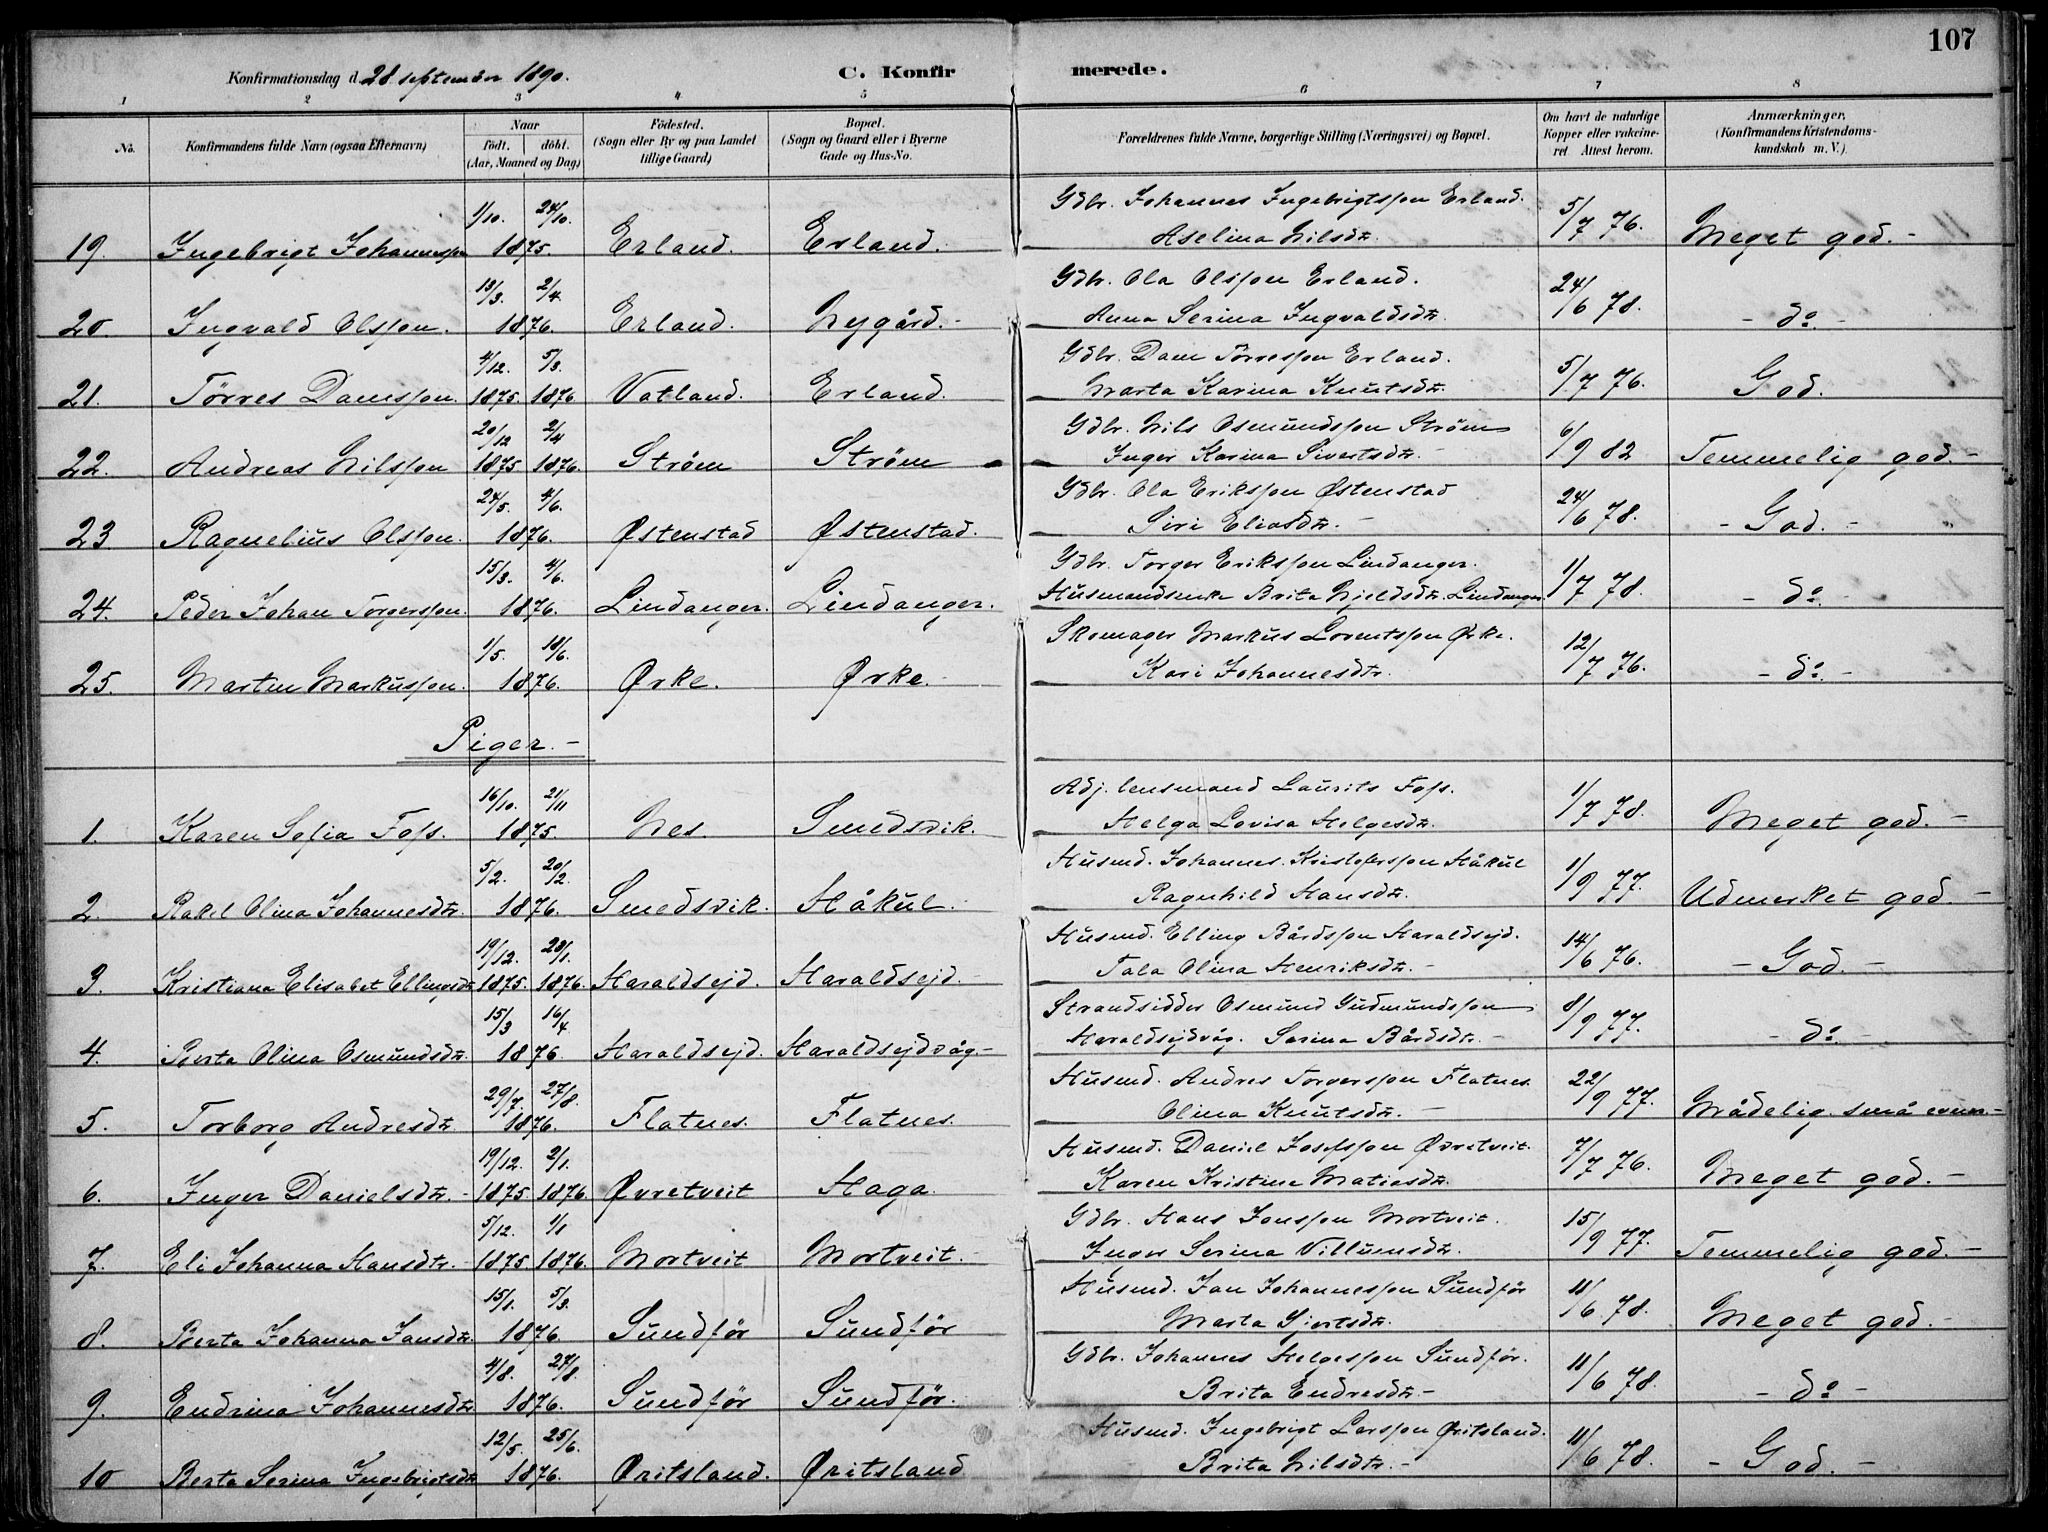 107
Konfirmationsdag d. 28. september 1890. C. Konfirmerede.
1 2 3 4 5 6 7 8
No. Konfirmandens fulde Navn (ogsaa Efternavn) Naar födt. döbt. (Aar, Maaned og Dag) Födested. (Sogn eller By og paa Landet tillige Gaard) Bopæl. (Sogn og Gaard eller i Byerne Gade og Hus-No. Forældrenes fulde Navne, borgerlige Stilling (Næringsvei) og Bopæl. Om havt de naturlige Kopper eller vakcineret. Attest herom. Anmærkninger, (Konfirmandens Kristendomskundskab m. V.)
19. Ingebrigt Johannesson 1/10. 24/10. 1875. Erland. Erland. Gdbr. Johannes Ingebrigtsson Erland. Aselina Nilsdtr. 5/7 76. Meget god. -
20. Ingvald Olsson. 13/3. 2/4. 1876. Erland. Nygård. - Gdbr. Ola Olsson Erland. Anna Serina Ingvaldsdtr. 24/6 78. - do. -
21. Tørres Damsson. 4/12. 1875. 5/3. 1876 Vatland. Erland. Gdbr. Dam Tørresson Erland. Marta Karina Knutsdtr. 5/7 76. God.
22. Andreas Nilsson 20/12 1875 2/4 1876. Strøm Strøm Gdbr. Nils Osmundsson Strøm Inger Karina Sivertsdtr. - 6/9 82 Temmelig god. -
23. Ragnelius Olsson. 24/5. 4/6. 1876. Østenstad Østenstad. Gdbr. Ola Eriksson Østenstad Siri Eliasdtr. - 24/6 78. - God. -
24. Peder Johan Torgersson. 15/3. 4/6. 1876. Lindanger. Lindanger. Gdbr. Torger Eriksson Lindanger. Husmandsenke Brita Njeldsdtr. Lindanger. 1/7 78. - do. -
25. Martin Markusson. 1/5. 18/6. 1876. Ørke. Ørke. - Skomager Markus Lorentsson Ørke. Kari Johannesdtr. 12/7 76. - do. -
Piger. -
1. Karen Sofia Foss. 16/10. 21/11 1875 Nes. Smedsvik. Adj. lensmand Laurits Foss. Helga Lovisa Helgesdtr. 1/7 78. Meget god. -
2. Rakel Olina Johannesdtr. 5/2. 20/2. 1876. Smedsvik. Håkul. Husmd. Johannes Kristofersson Håkul Ragnhild Hansdtr. 1/9 77. Udmerket god. -
3. Kristiana Elisabet Ellingsdtr 19/12. 1875. 23/1. 1876. Haraldsejd. Haraldsejd. - Husmd. Elling Bårdsson Haraldsejd. Tala Olina Henriksdtr. - 14/6 76. - God. -
4. Berta Olina Osmundsdtr. 15/3 16/4. 1876 Haraldsejd. Haraldsejdvåg - Strandsidder Osmund Gudmundsson Haraldsejdvåg. Serina Bårdsdtr. - 8/9 77. - do
5. Torborg Andresdtr. 29/7. 27/8. 1876. Flatnes. Flatnes. Husmd. Andres Torgersson Flatnes. Olina Knutsdtr. - 22/9 77. Mådelig. små evner. -
6. Inger Danielsdtr. - 19/12. 1875 2/1. 1876. Øvretveit Haga. Husmd. Daniel Josefsson Øvretveit. Karen Kristine Matiasdtr. 7/7 76. Meget god. -
7. Eli Johanna Hansdtr. - 5/12. 1875 1/1 1876. Mortveit Mortveit. - Gdbr. Hans Jonsson Mortveit. Inger Serina Villumsdtr. 15/9 77. Temmelig god. -
8. Berta Johanna Jansdtr. 15/1. 5/3. 1876. Sundför Sundför Husmd. Jan Johannesson Sundför Marta Sjertsdtr. 11/6 78. Meget god. -
9. Endrina Johannesdtr. 4/8. 27/8. 1876. Sundför Sundför. Gdbr. Johannes Helgesson Sundför. Brita Endresdtr - 11/6 78. - do -
10 Berta Serina Ingebrigtsdtr 12/5. 25/6. 1876. Øritsland. Øritsland Husmd. Ingebrigt Larsson Øritsland. Brita Nilsdtr. - 11/6 78. - God. -